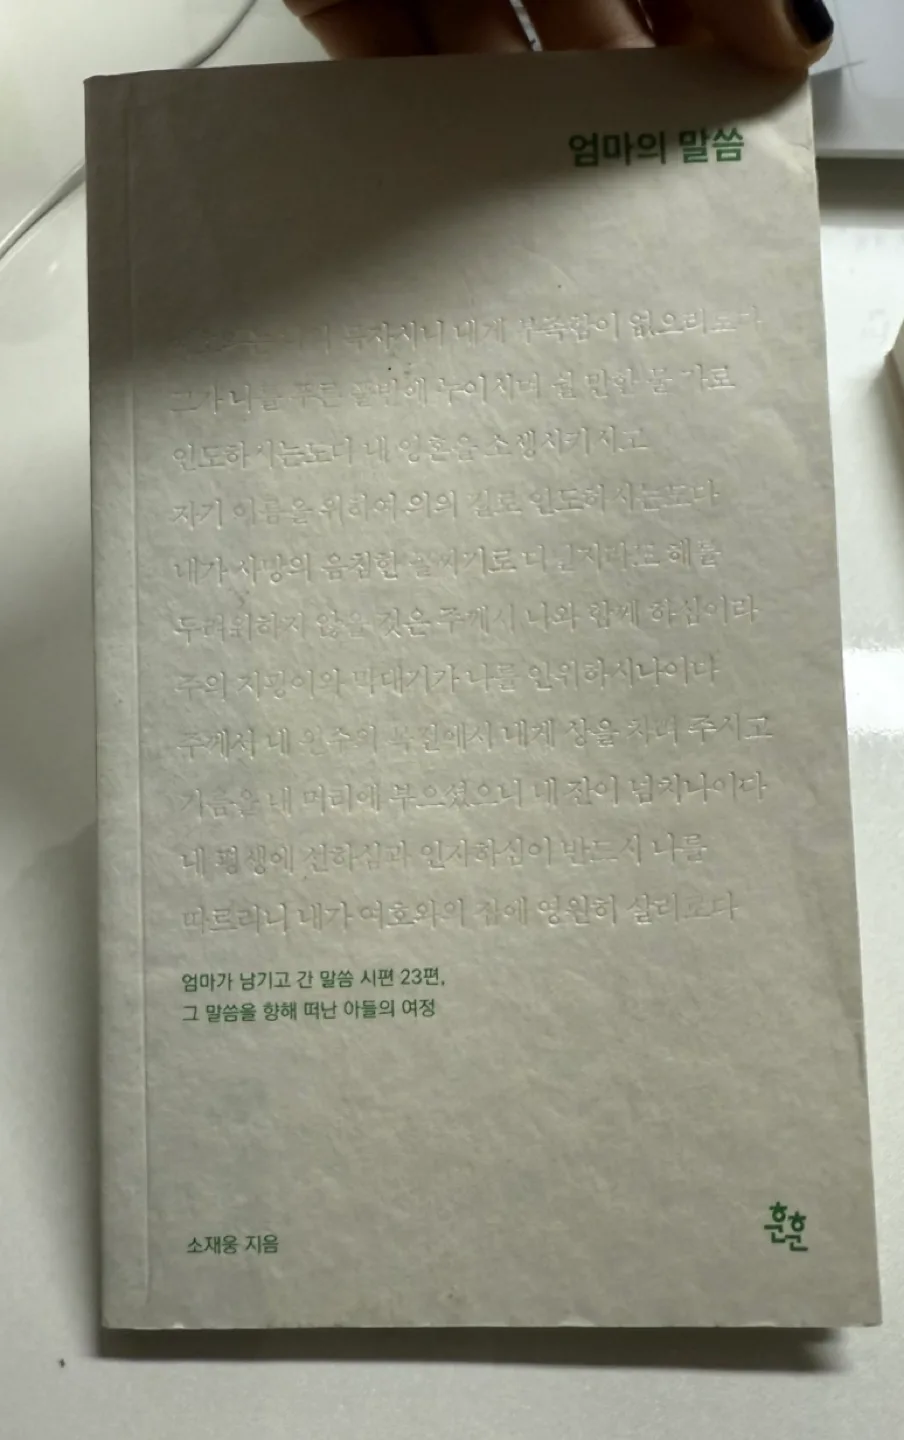 엄마의 말씀
목자시니 내게 부족함이 없으리로다
그가 나를 푸른 풀밭에 누이시며 쉴 만한 물 가로
인도하시는도다 내 영혼을 소생시키시고
자기 이름을 위하여 의의 길로 인도하시는도다
내가 사망의 음침한 골짜기로 다닐지라도 해를
두려워하지 않을 것은 주께서 나와 함께 하심이라
주의 지팡이와 막대기가 나를 안위하시나이다
주께서 내 원수의 목전에서 내게 상을 차려 주시고
기름을 내 머리에 부으셨으니 내 잔이 넘치나이다
내 평생에 선하심과 인자하심이 반드시 나를
따르리니 내가 여호와의 집에 영원히 살리로다
엄마가 남기고 간 말씀 시편 23편,
그 말씀을 향해 떠난 아들의 여정
소재웅 지음
훈훈